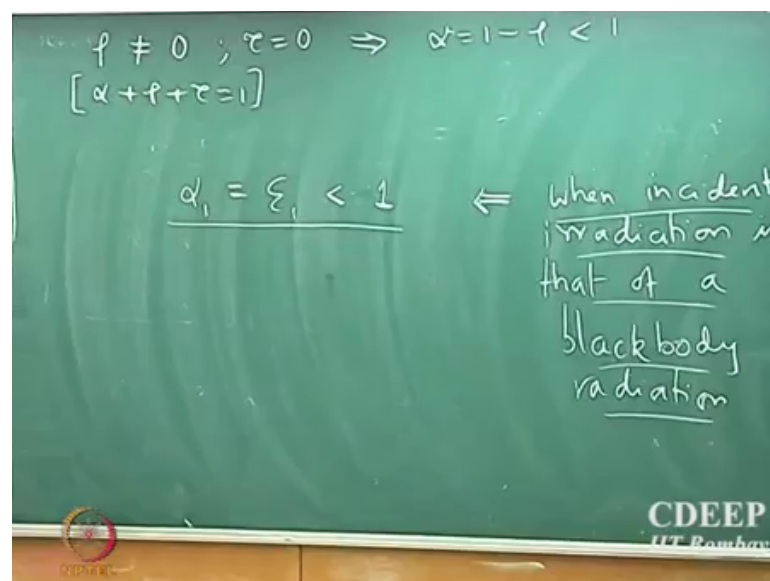 ρ ≠ 0 ; τ = 0 ⇒ α = 1 − ρ < 1
[α + ρ + τ = 1]
α₁ = ε₁ < 1 ⇐ when incident
irradiation i
that of a
blackbody
radiation
CDEEP
IIT Bombay
NPTEL